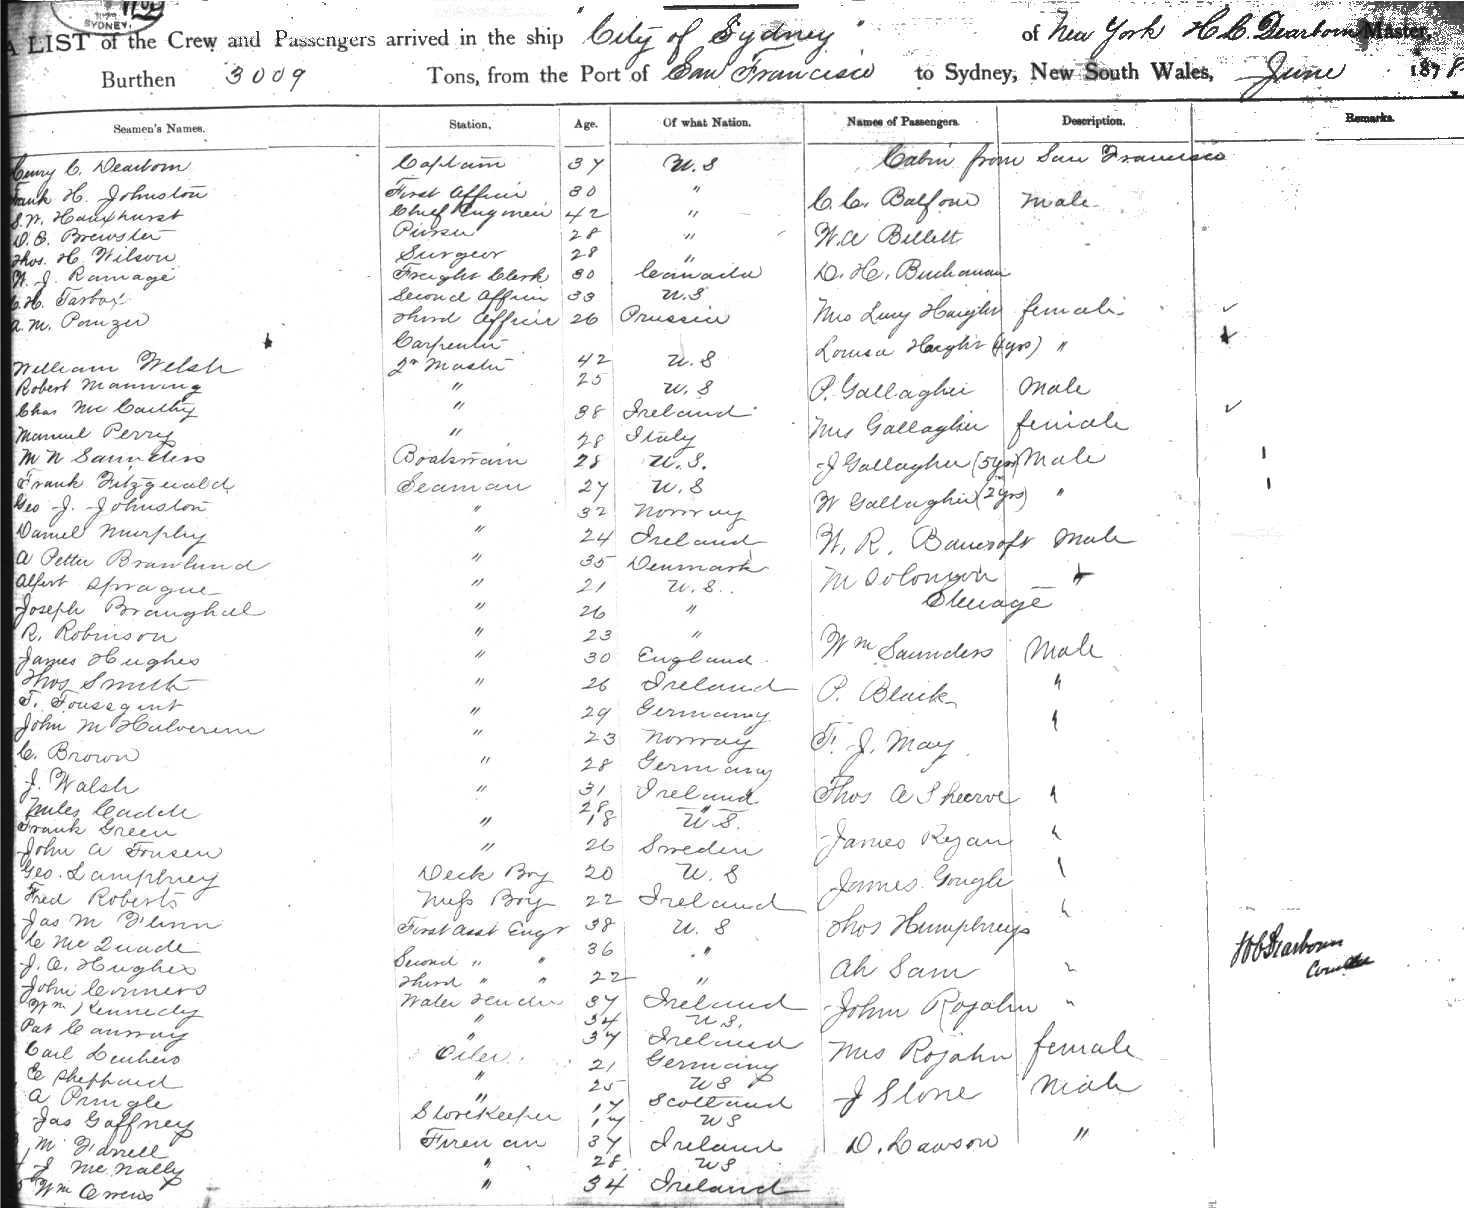 SYDNEY.
A LIST of the Crew and Passengers arrived in the ship "City of Sydney" of New York H C Dearborn Master,
Burthen 3009 Tons, from the Port of San Francisco to Sydney, New South Wales, June 1878
Seamen's Names. Station. Age. Of what Nation. Names of Passengers. Description. Remarks.
Cabin from San Francisco
Henry C. Dearborn Captain 37 U.S
Frank H. Johnston First Officer 30 " C. C. Balfour Male
S. W. Hauxhurst Chief Engineer 42 "
D. E. Brewster Purser 28 " W. A Billett
Thos. H. Wilson Surgeon 28 "
W. J. Ramage Freight Clerk 30 Canada D. H. Buchanan
C. H. Tarbox Second Officer 33 U.S
A. M. Panzer Third Officer 26 Prussia Mrs Lucy Haigler female
Carpenter Louisa Haigler (4 yrs) "
William Welsh Qr Master 42 U.S
Robert Manning " 25 U.S P. Gallagher Male
Chas McCarthy " 38 Ireland Mrs Gallagher female
Manuel Perry " 28 Italy
M N Saunders Boatswain 28 U.S. J Gallagher (5 yrs) Male
Frank Fitzgerald Seaman 27 U.S W Gallagher (2 yrs) "
Geo. J. Johnston " 32 Norway
Daniel Murphy " 24 Ireland W. R. Bancroft Male
A Petter Brawlund " 35 Denmark
Albert Sprague " 21 U.S. M Solomon
Steerage
Joseph Branghal " 26 "
R. Robinson " 23 " Wm Saunders Male
James Hughes " 30 England
Thos Smith " 26 Ireland P. Black "
T. Toussaint " 29 Germany
John M Halversen " 23 Norway F. J. May "
C. Brown " 28 Germany
J. Walsh " 31 Ireland Thos A Sheerve "
Miles Caddell 28 "
Frank Green " 18 U.S. James Ryan "
John A Fonsen " 26 Sweden
Geo. Lamphrey Deck Boy 20 U.S James Gough "
Fred Roberts Mess Boy 22 Ireland
Jas M Flinn First Asst Engr 38 U.S Thos Humphreys "
C McQuade Second " " 36 "
J. A. Hughes Third " " 22 " Ah Sam "
John Conners Water Tender 37 Ireland John Rojahn "
Wm Kennedy " 34 U.S.
Pat Canway " 37 Ireland Mrs Rojahn female
Carl Leuhers Oiler 21 Germany
E Sheppard " 25 U S J Slone Male
A Pringle " 17 Scotland
Jas Gaffney Storekeeper U S
M Farrell Fireman 37 Ireland D. Lawson "
J McNally " 28 U S
Wm Owens " 34 Ireland
H C Dearborn